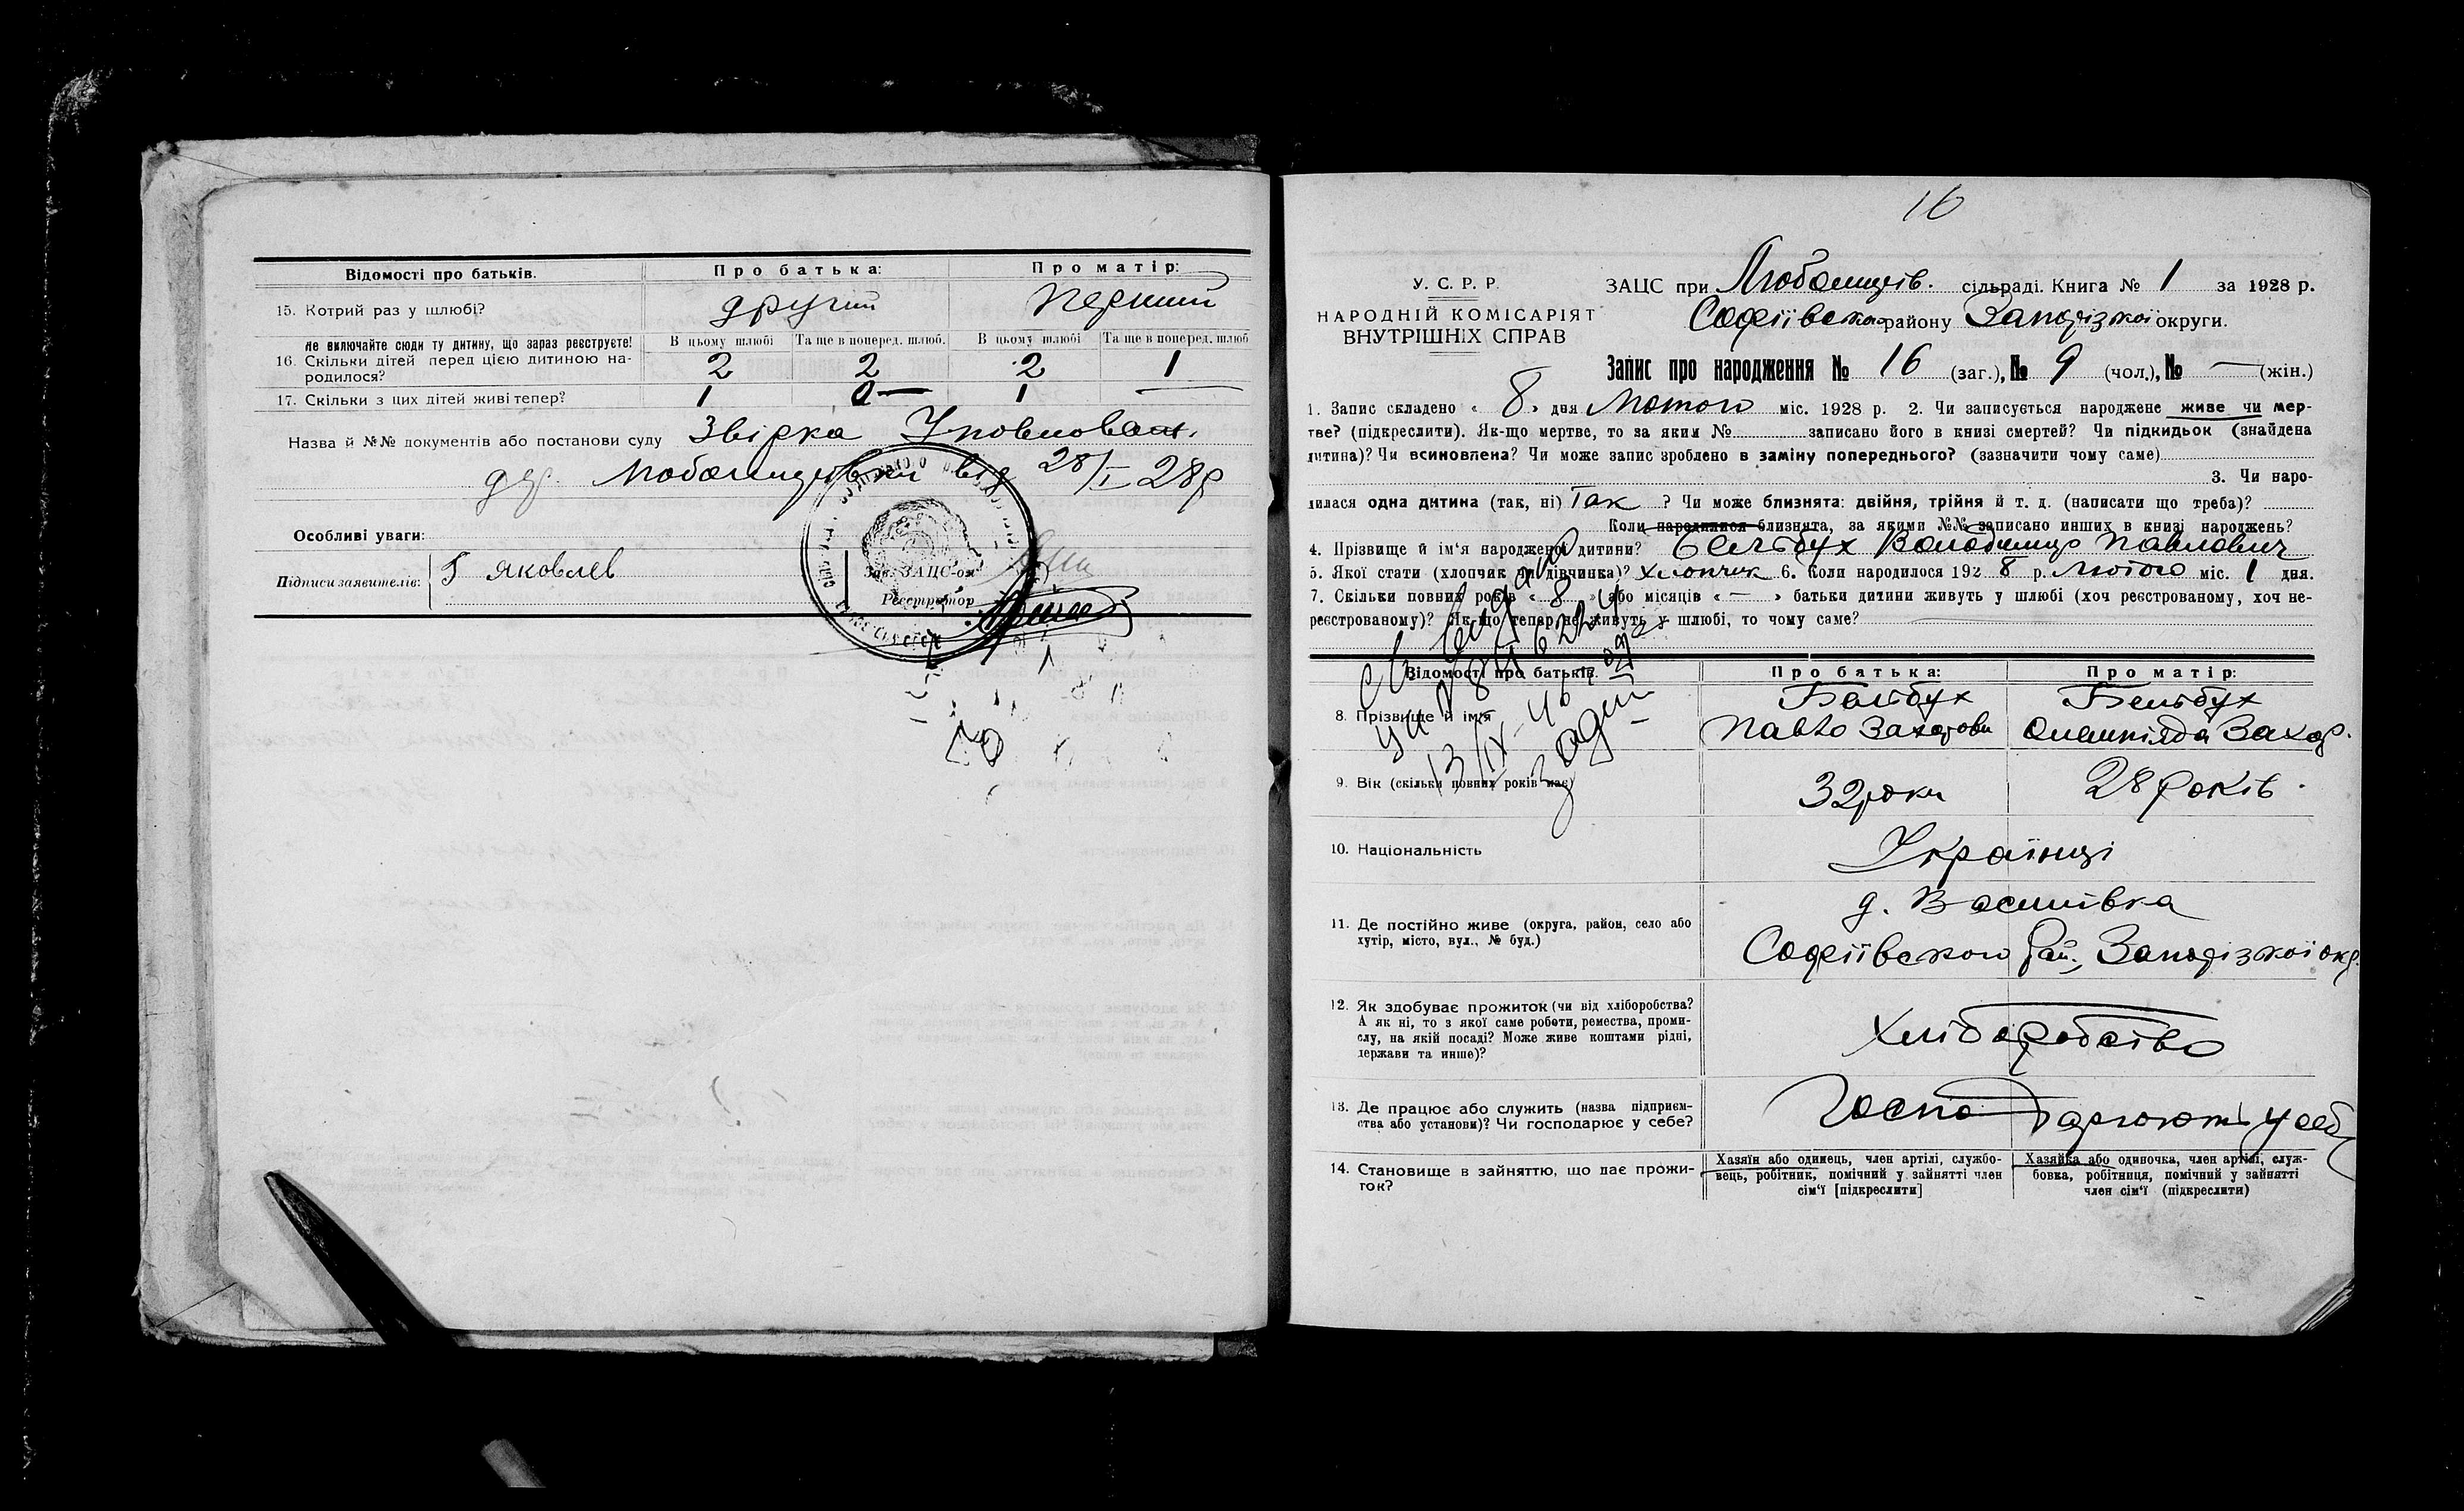 Відомості про батьків. Про батька: Про матір:
15. Котрий раз у шлюбі? другий Перший
Не включайте сюди ту дитину, що зараз реєструєте! В цьому шлюбі Та ще в поперед. шлюб. В цьому шлюбі Та ще в поперед. шлюб
16. Скільки дітей перед цією дитиною на- 2 2 2 1
родилося?
17. Скільки з цих дітей живі тепер? 1 0— 1 —
Назва й №№ документів або постанови суду Звірка Уповнов
від 28/I 28р
Особливі уваги:
Підписи заявителів: Г Яковлев
Зав. ЗАЦС-ом
Реєстратор
16
У. С. Р. Р.
НАРОДНІЙ КОМІСАРІЯТ
ВНУТРІШНІХ СПРАВ
ЗАЦС при Любомирів. сільраді. Книга № 1 за 1928 р.
Софіївського району Запорізької округи.
Запис про народження № 16 (заг.), № 9 (чол.), № — (жін.)
1. Запис складено « 8 » дня Лютого міс. 1928 р. 2. Чи записується народжене живе чи мер-
тве? (підкреслити). Як-що мертве, то за яким № записано його в книзі смертей? Чи підкидьок (знайдена
дитина)? Чи всиновлена? Чи може запис зроблено в заміну попереднього? (зазначити чому саме)
3. Чи наро-
дилася одна дитина (так, ні) Так ? Чи може близнята: двійня, трійня й т. д. (написати що треба)?
Коли народилися близнята, за якими №№ записано инших в книзі народжень?
4. Прізвище й ім'я народженої дитини? Бельбух Володимир Павлович
5. Якої стати (хлопчик чи дівчинка)? Хлопчик 6. Коли народилося 192 8 р. Лютого міс. 1 дня.
7. Скільки повних років « 8 » або місяців « — » батьки дитини живуть у шлюбі (хоч реєстрованому, хоч не-
реєстрованому)? Як-що тепер не живуть у шлюбі, то чому саме?
Відомості про батьків. Про батька: Про матір:
8. Прізвище й ім'я Бельбух Бельбух
Павло Захарови Олимпіяда Захар.
9. Вік (скільки повних років має) 32 роки 28 років.
10. Національність Українці
д. Василівка
11. Де постійно живе (округа, район, село або
хутір, місто, вул., № буд.) Софіївського Рай. Запорізької окр.
12. Як здобуває прожиток (чи від хліборобства?
А як ні, то з якої саме роботи, ремества, проми-
слу, на якій посаді? Може живе коштами рідні,
держави та инше)? Хліборобство
13. Де працює або служить (назва підприєм-
ства або установи)? Чи господарює у себе? Господарюють у себе
14. Становище в зайняттю, що дає прожи-
ток?
Хазяїн або одинець, член артілі, службо-
вець, робітник, помічний у зайнятті член
сім'ї [підкреслити]
Хазяйка або одиночка, член артілі, служ-
бовка, робітниця, помічний у зайнятті
член сім'ї (підкреслити)